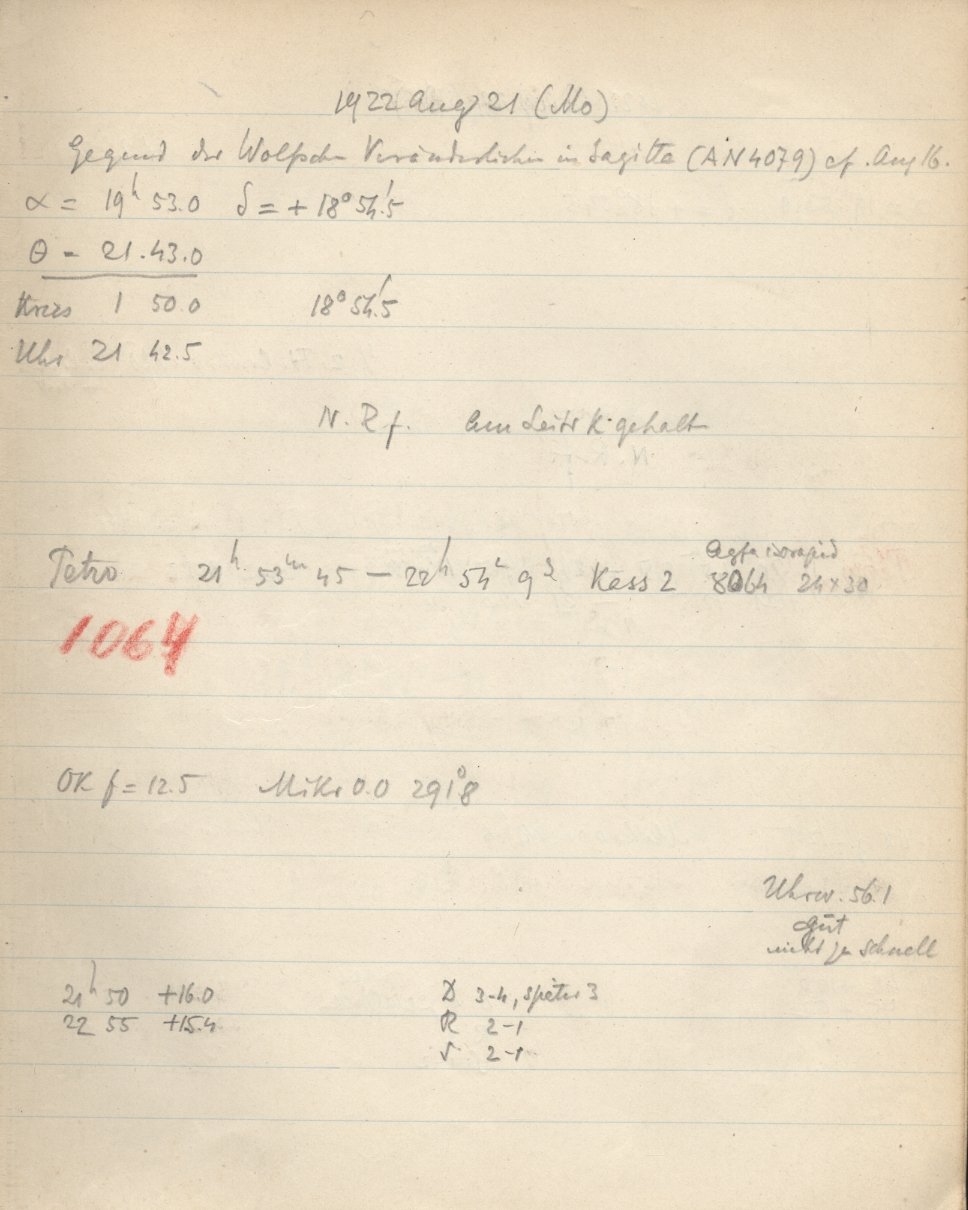 1922 Aug 21 (Mo)
Gegend der Wolfschen Veränderlichen in Sagitta (AN 4079) cf. Aug 16.
α = 19ʰ 53.0 δ = + 18° 54.'5
θ = 21.43.0
Kreis 1 50.0 18° 54.'5
Uhr 21 42.5
N. R f. am Leitr K gehalt
Petzv 21ʰ 53ᵐ 45 — 22ʰ 54ᵐ 9ˢ Kass 2 8064 24×30
Agfa isorapid
1064
OK f = 12.5 Mikr 0.0 291°8
Uhrw. 56.1
gut
nicht zu schnell
21ʰ 50 +16.0 D 3-4, später 3
22 55 +15.4 R 2-1
2-1